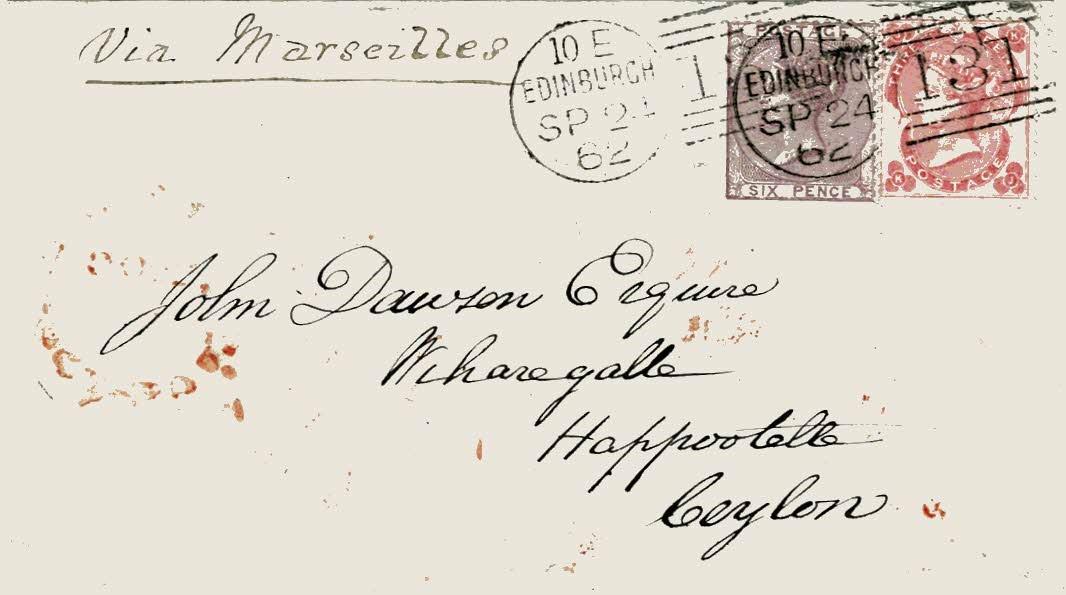 Via Marseilles
10 E
EDINBURGH
SP 24
62
1
10 E
EDINBURGH
SP 24
62
131
POSTAGE
SIX PENCE
POSTAGE
K
K J
John Dawson Esquire
Wiharegalle
Happootelle
Ceylon